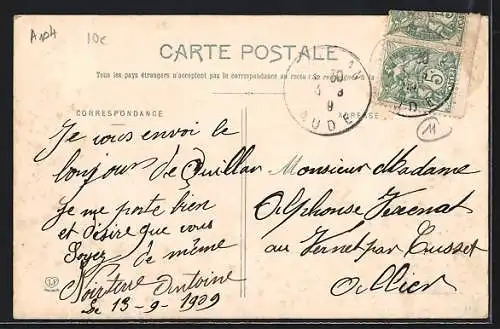 10c
CARTE POSTALE
Tous les pays étrangers n'acceptent pas la correspondance au recto
CORRESPONDANCE
ADRESSE
11
AUDE
Je vous envoi le
bonjour de Quillan
Je me porte bien
et désire que vous
Soyez de même
Antoine
Le 13-9-1909
Monsieur Madame
Alphonse
au Vernet par Cusset
Allier